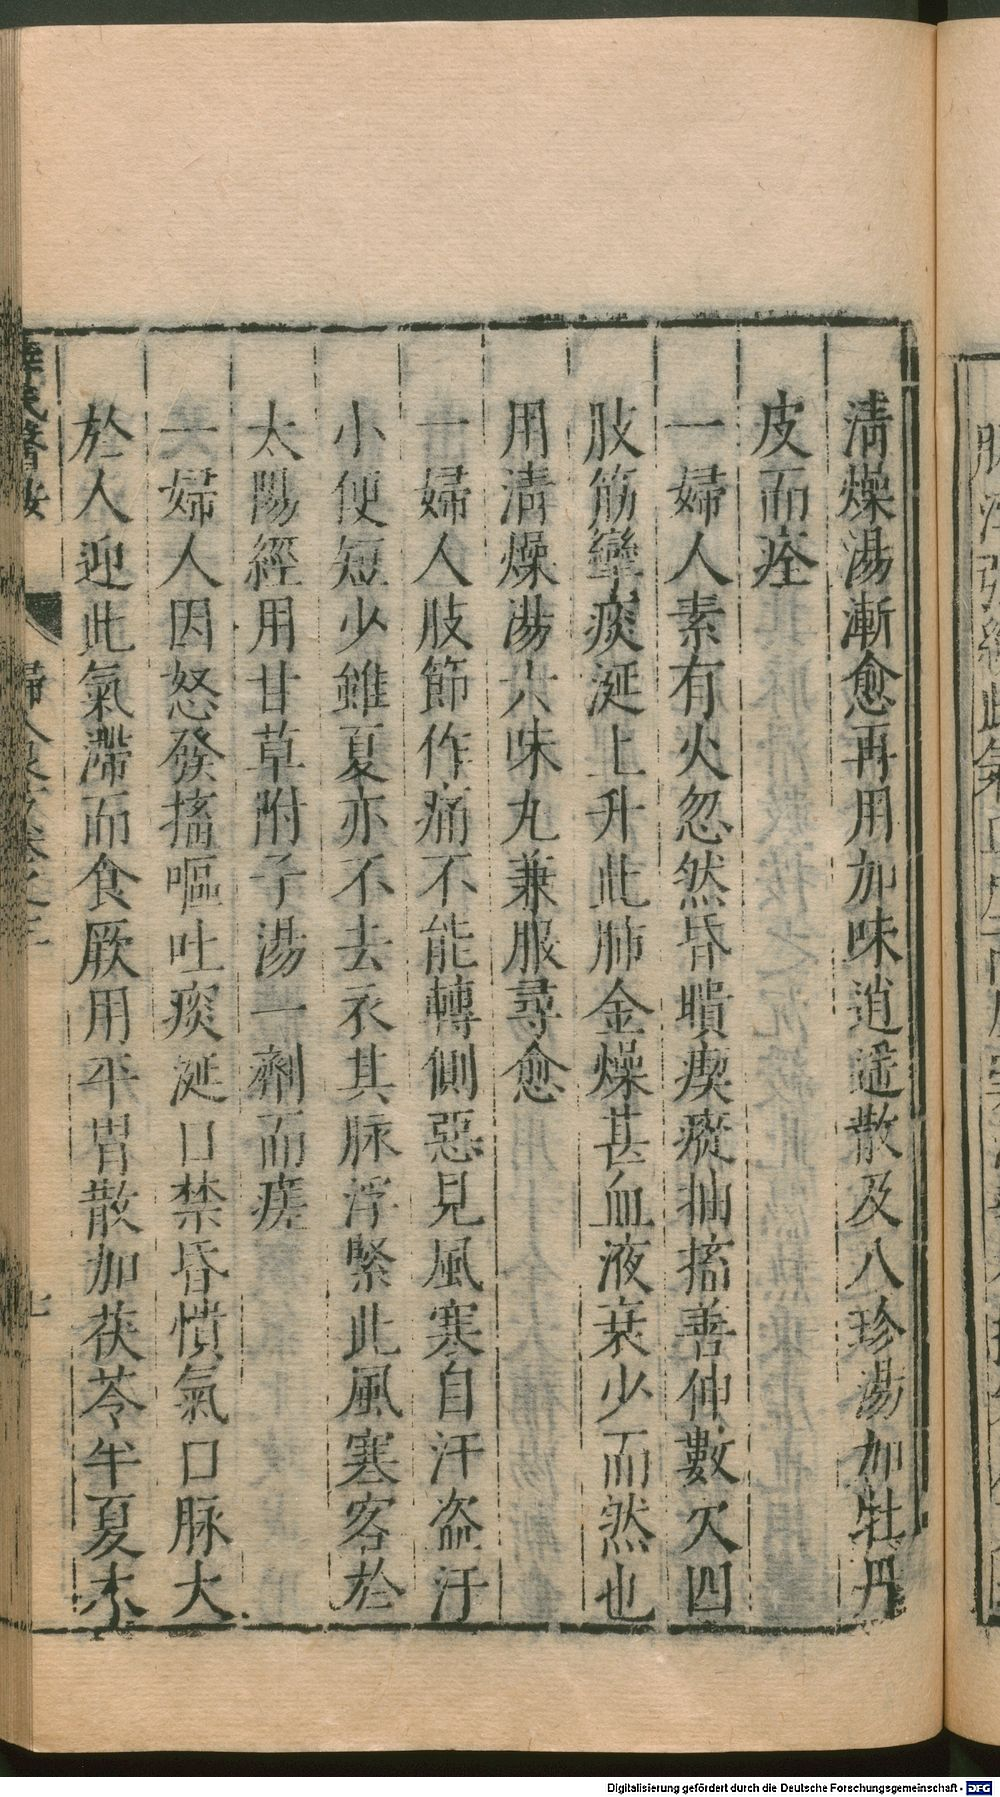 清燥湯漸愈再用加味逍遥散及八珍湯加牡丹
皮而痊
一婦人素有火忽然昏瞶瘈瘲抽搐善伸數欠四
肢筋攣痰涎上升此肺金燥甚血液衰少而然也
用清燥湯六味丸兼服尋愈
一婦人肢節作痛不能轉側惡見風寒自汗盗汗
小便短少雖夏亦不去衣其脉浮緊此風寒客於
太陽經用甘草附子湯一劑而瘥
一婦人因怒發搐嘔吐痰涎口禁昏憒氣口脉大
於人迎此氣滯而食厥用平胃散加茯苓半夏木
薛氏醫按 婦人良方卷之三 七
Digitalisierung gefördert durch die Deutsche Forschungsgemeinschaft - DFG